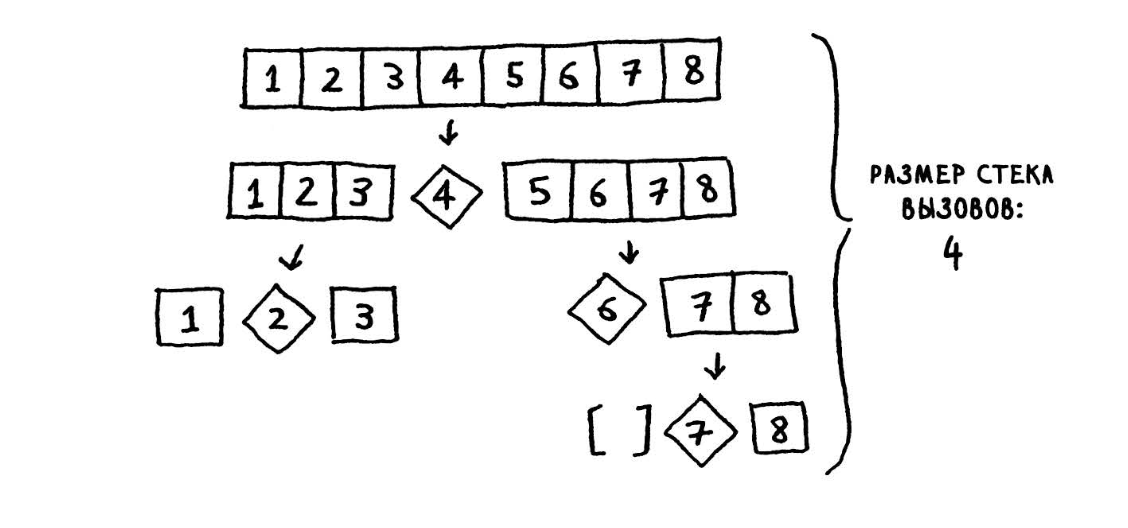 1 2 3 4 5 6 7 8
1 2 3 4 5 6 7 8
1 2 3 6 7 8
[ ] 7 8
РАЗМЕР СТЕКА
ВЫЗОВОВ:
4